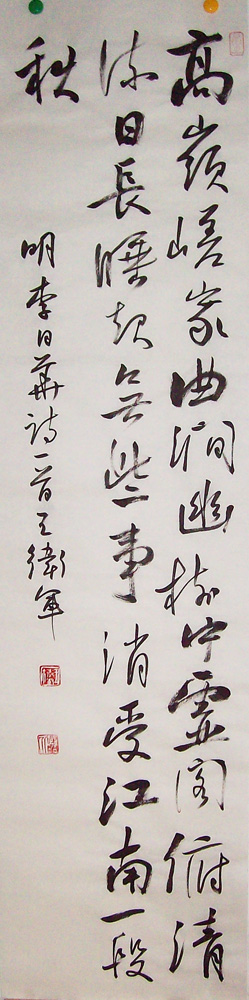 高嶺嵯峩曲澗幽樹中靈閣俯清
流日長睡起無些事消受江南一段
秋
明李日華詩一首王衛軍